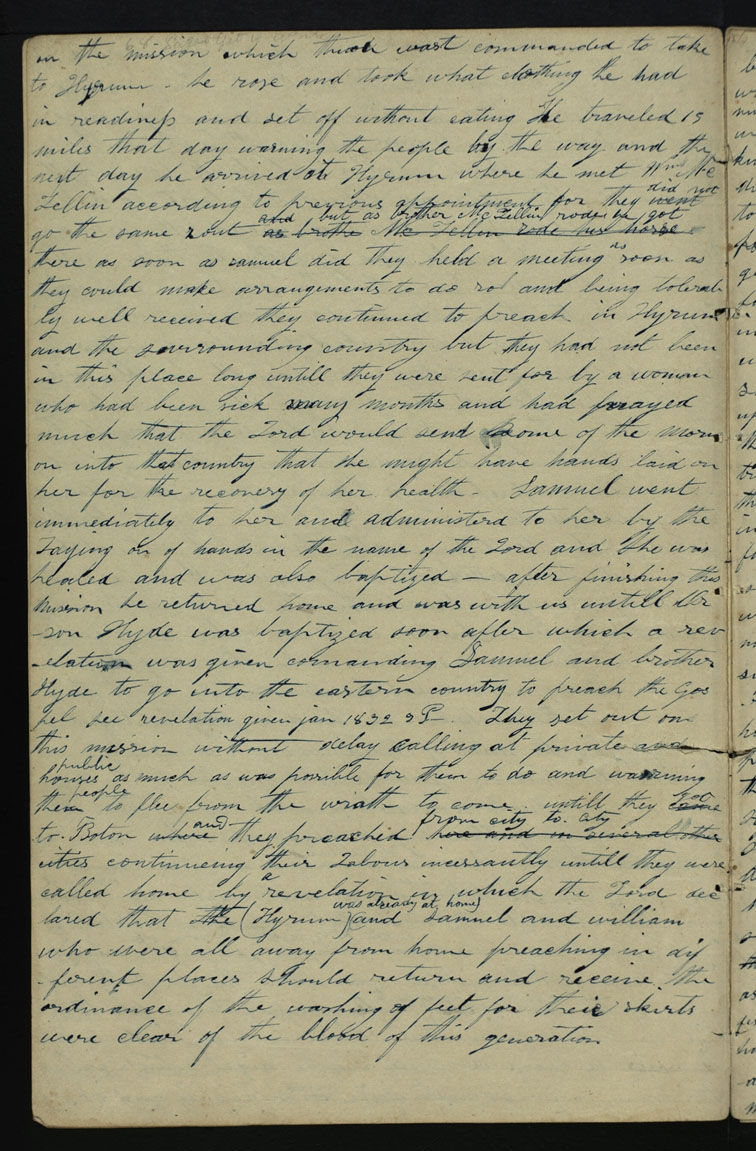 in the mission which thou wast commanded to take
to Hyrum - he rose and took what clothing he had
in readiness and set off without eating He traveled 15
miles that day warning the people by the way and the
next day he arrived at Hyrum where he met Wm Mc
Lellin according to previous appointment for they went did not
go the same rout as brothe Mc Lellin rode his horse and but as brother McLellin rode he got
there as soon as samuel did they held a meeting as soon as
they could make arrangements to do so and being tolerab
ly well received they continued to preach in Hyrum
and the surrounding country but they had not been
in this place long untill they were sent for by a woman
who had been sick many months and had prayed
much that the Lord would send some of the morm
on into that country that she might have hands laid on
her for the recovery of her health - Samuel went
immediately to her and administerd to her by the
Laying on of hands in the name of the Lord and She was
healed and was also baptized — after finishing this
Mission he returned home and was with us untill Or
-son Hyde was baptized soon after which a rev
-elation was given comanding Samuel and brother
Hyde to go into the eastern country to preach the Gos
pel see revelation given jan 1832 They set out on
this mission without delay calling at private and
public
houses as much as was possible for them to do and warning
people
them to flee from the wrath to come untill they came got
to Boton where and they preached here and in several other from city to city
cities continueing their Labours incessantly untill they were
called home by a revelation in which the Lord dec
lared that the (Hyrum was already at home) and samuel and william
who were all away from home preaching in dif
-ferent places should return and receive the
ordinance of the washing of feet for their skirts
were clear of the blood of this generation